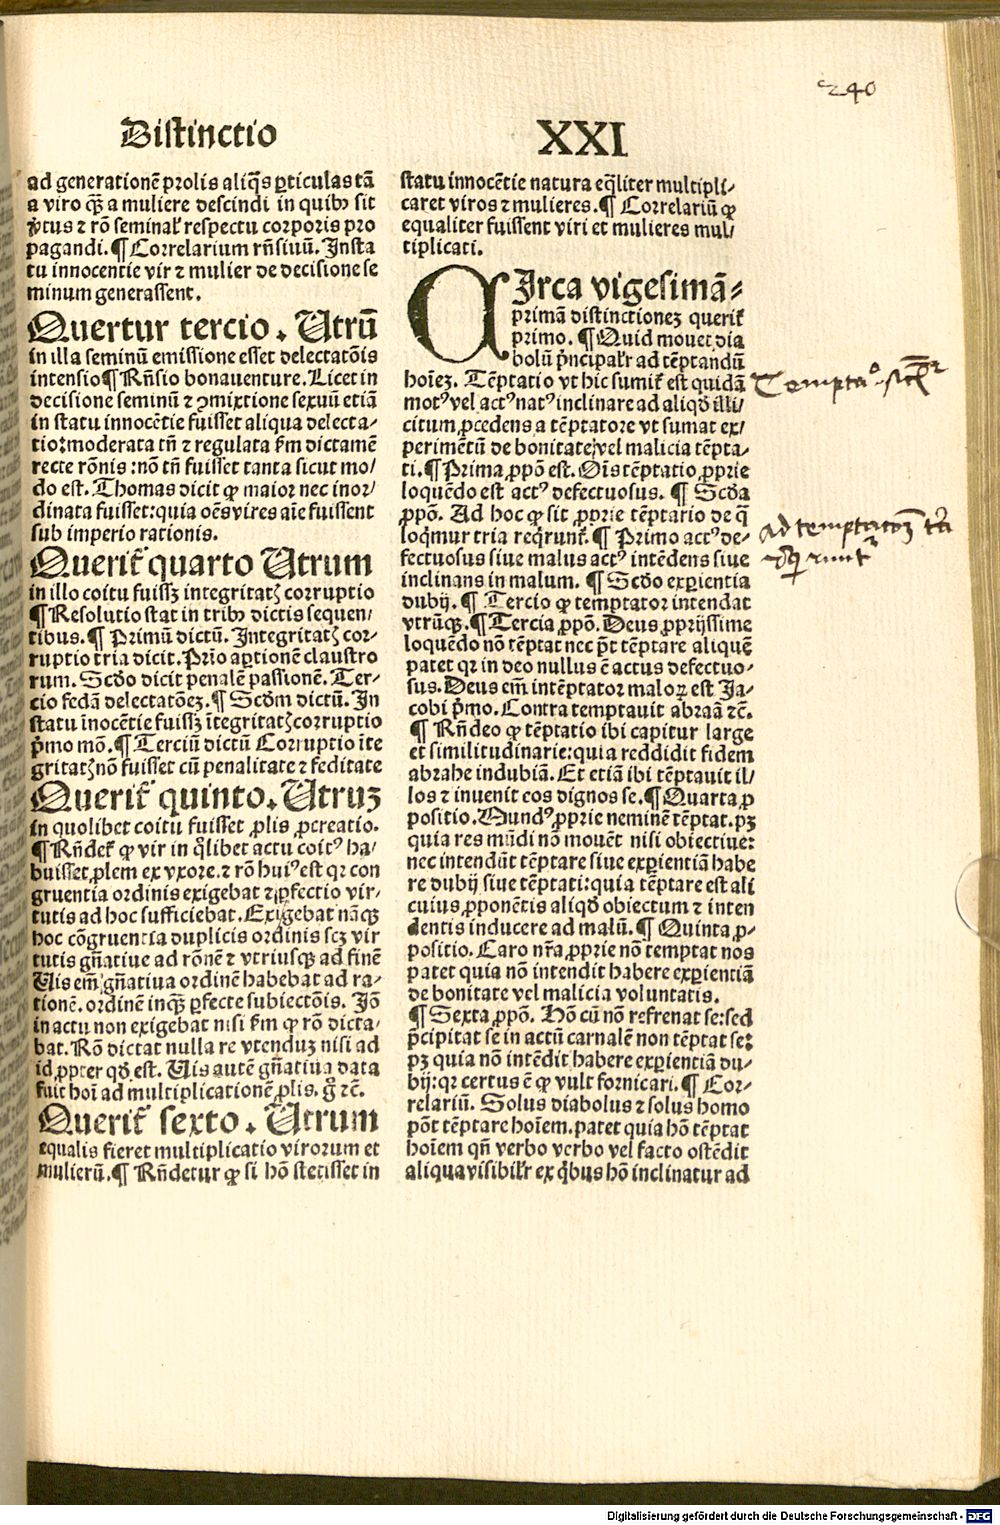 240
Distinctio XXI
ad generationē prolis aliq̄s ꝑticulas tā
a viro qꝫ a muliere descindi in quibꝰ sit
v̓tus ⁊ rō seminal̓ respectu corporis pro
pagandi. ¶ Correlarium rn̄siuū. Insta
tu innocentie vir ⁊ mulier de decisione se
minum generassent.
Quertur tercio. Utrū
in illa seminū emissione esset delectatōis
intensio ¶ Rn̄sio bonauenture. Licet in
decisione seminū ⁊ ꝯmixtione sexuū etiā
in statu innocētie fuisset aliqua delecta-
tio: moderata tn̄ ⁊ regulata ẜm dictamē
recte rōnis: nō tn̄ fuisset tanta sicut mo/
do est. Thomas dicit ꝙ maior nec inor/
dinata fuisset: quia oēs vires aīe fuissent
sub imperio rationis.
Querit̄ quarto Utrum
in illo coitu fuissꝫ integritatꝭ corruptio
¶ Resolutio stat in tribꝰ dictis sequen/
tibus. ¶ Primū dictū. Integritatꝭ cor-
ruptio tria dicit. Prīo aꝑtionē claustro
rum. Scd̄o dicit penalē passionē. Ter-
cio fedā delectatōeꝫ. ¶ Scd̄m dictū. In
statu īnocētie fuissꝫ ītegritatꝭ corruptio
p̓mo mō. ¶ Terciū dictū Corruptio īte
gritatꝭ nō fuisset cū penalitate ⁊ feditate
Querit̄ quinto. Utruꝫ
in quolibet coitu fuisset ꝓlis ꝓcreatio.
¶ Rn̄det̄ ꝙ vir in q̄libet actu coitꝰ ha/
buisset ꝓlem ex vxore. ⁊ rō huiꝰ est qꝛ con
gruentia ordinis exigebat ⁊ ꝑfectio vir-
tutis ad hoc sufficiebat. Exigebat nāqꝫ
hoc cōgruentia duplicis ordinis scꝫ vir
tutis gn̄atiue ad rōnē ⁊ vtriusqꝫ ad finē
Uis em̄ gn̄atiua ordinē habebat ad ra-
tionē. ordinē inqꝫ ꝑfecte subiectōis. Iō
in actu non exigebat nisi ẜm ꝙ rō dicta/
bat. Rō dictat nulla re vtenduꝫ nisi ad
id ꝓpter qd̄ est. Uis autē gn̄atiua data
fuit hoī ad multiplicationē ꝓlis. g̊ ⁊c̄.
Querit̄ sexto. Utrum
equalis fieret multiplicatio virorum et
mulierū. ¶ Rn̄detur ꝙ si hō stetisset in
statu innocētie natura eq̄liter multipli/
caret viros ⁊ mulieres. ¶ Correlariū ꝙ
equaliter fuissent viri et mulieres mul/
tiplicati.
CIrca vigesimā-
primā distinctioneꝫ querit̄
primo. ¶ Quid mouet dia
bolū p̓ncipalr̄ ad tēptandū
hoīeꝫ. Tēptatio vt hic sumit̄ est quidā
motꝰ vel actꝰ natꝰ inclinare ad aliqd̄ illi/
citum ꝓcedens a tēptatore vt sumat ex/
perimētū de bonitate vel malicia tēpta-
ti. ¶ Prima ꝓpō est. Oīs tēptatio ꝓprie
loquēdo est actꝰ defectuosus. ¶ Scd̄a
ꝓpō. Ad hoc ꝙ sit ꝓprie tēptatio de q̄
loq̄mur tria req̄runt̄. ¶ Primo actꝰ de-
fectuosus siue malus actꝰ intēdens siue
inclinans in malum. ¶ Scd̄o exꝑientia
dubij. ¶ Tercio ꝙ temptator intendat
vtrūqꝫ. ¶ Tercia ꝓpō. Deus ꝓprijssime
loquēdo nō tēptat nec pōt tēptare aliquē
patet qꝛ in deo nullus ē actus defectuo-
sus. Deus em̄ intēptator maloꝝ est Ja-
cobi p̓mo. Contra temptauit abraā ⁊c̄.
¶ Rn̄deo ꝙ tēptatio ibi capitur large
et similitudinarie: quia reddidit fidem
abrahe indubiā. Et etiā ibi tēptauit il/
los ⁊ inuenit eos dignos se. ¶ Quarta ꝓ
positio. Mundꝰ ꝓprie neminē tēptat. pꝫ
quia res mūdi nō mouēt nisi obiectiue:
nec intendūt tēptare siue exꝑientiā habe
re dubij siue tēptati: quia tēptare est ali
cuius ꝓponētis aliqd̄ obiectum ⁊ inten
dentis inducere ad malū. ¶ Quinta ꝓ-
positio. Caro nr̄a ꝓprie nō temptat nos
patet quia nō intendit habere exꝑientiā
de bonitate vel malicia voluntatis.
¶ Sexta ꝓpō. Hō cū nō refrenat se: sed
p̄cipitat se in actū carnalē non tēptat se:
pꝫ quia nō intēdit habere exꝑientiā du-
bij: qꝛ certus ē ꝙ vult fornicari. ¶ Cor-
relariū. Solus diabolus ⁊ solus homo
pōt tēptare hoīem. patet quia hō tēptat
hoīem qn̄ verbo verbo vel facto ostēdit
aliqua visibilr̄ ex qb̄us hō inclinatur ad
Ad temptatoꝫ
Digitalisierung gefördert durch die Deutsche Forschungsgemeinschaft - DFG